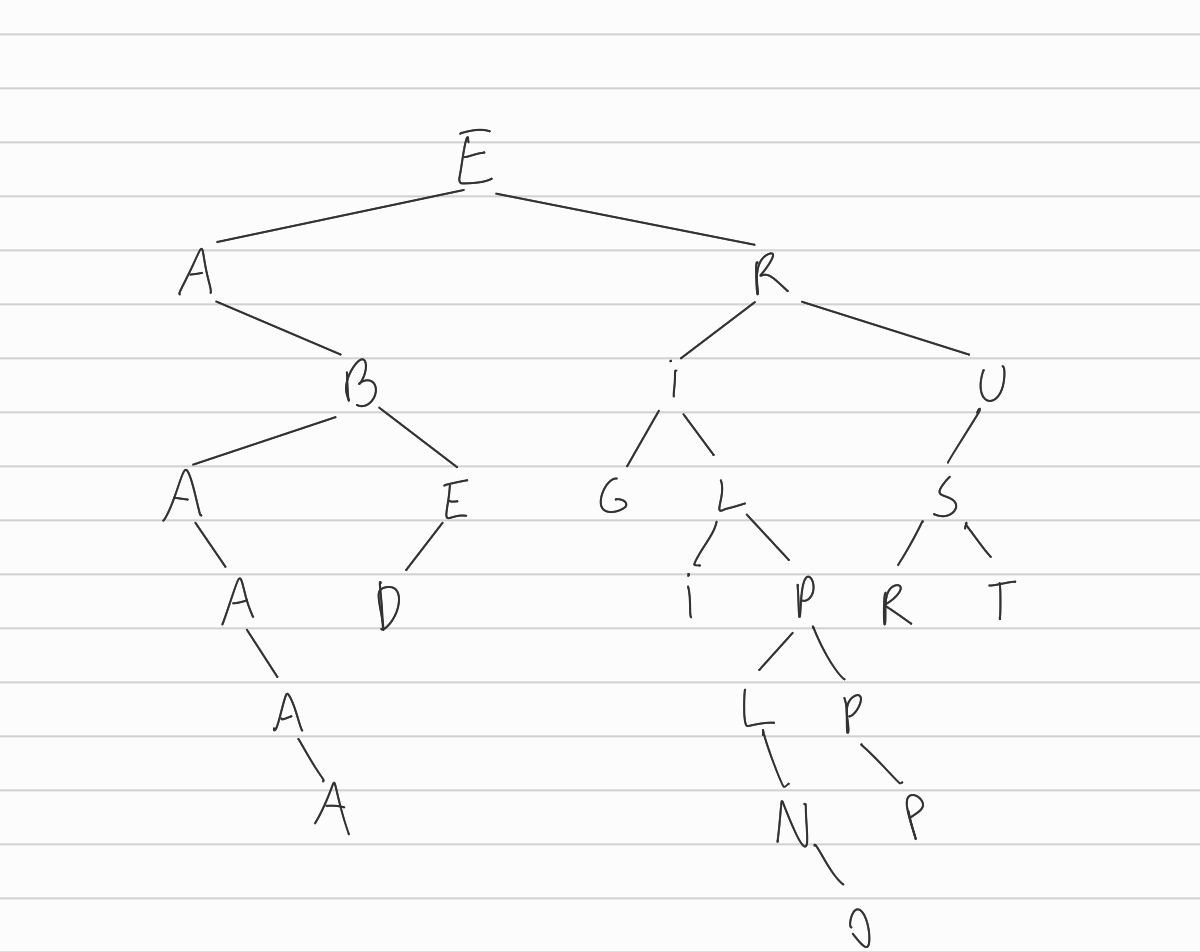 E
A R
B I U
A E G L S
A D i P R T
A L P
A N P
O